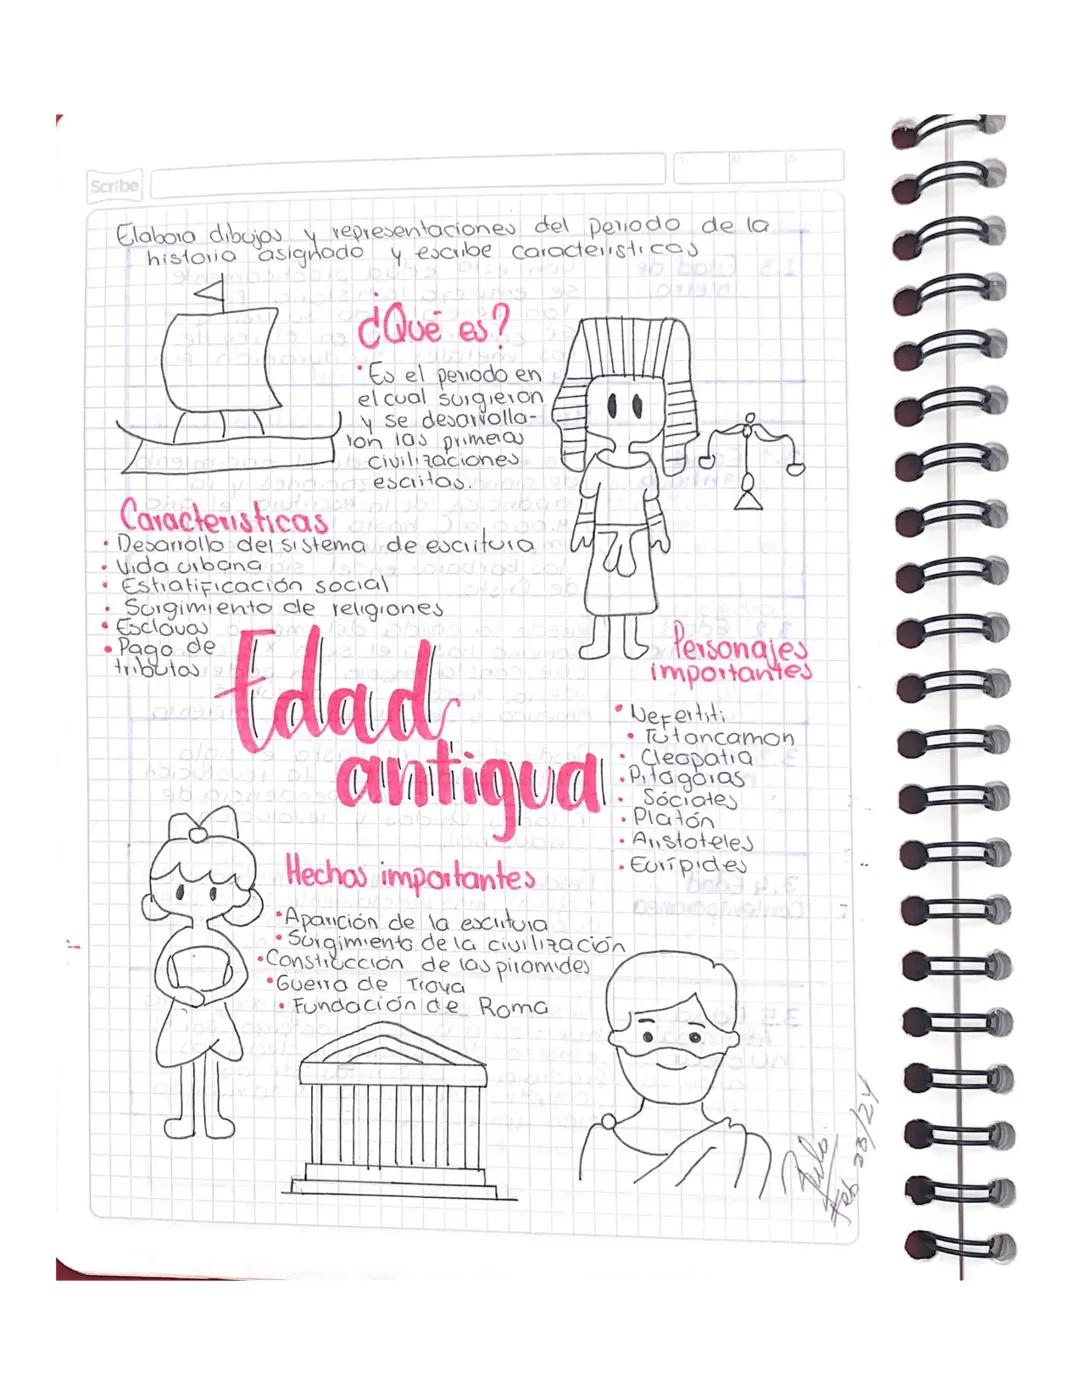 Scribe
Elabora dibujos y representaciones del periodo de la
historia asignado y escribe caracteristicas
¿Qué es?
• Es el periodo en
el cual surgieron
y se desarrolla-
ron las primeras
civilizaciones
escritas.
Caracteristicas
• Desarrollo del sistema de escritura
• Vida urbana
• Estratificación social
• Surgimiento de religiones
• Esclavos
• Pago de
tributos
Edad
antigua
Personajes
importantes
• Nefertiti
• Tutancamon
• Cleopatra
• Pitagoras
• Sócrates
• Platón
• Aristoteles
• Eurípides
Hechos importantes
• Aparición de la escritura
• Surgimiento de la civilización
• Construcción de las piramides
• Guerra de Troya
• Fundación de Roma
Feb 23/24